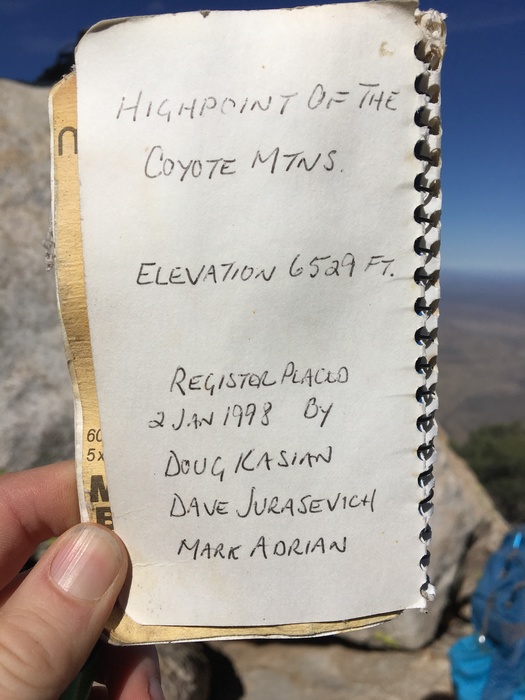 HIGHPOINT OF THE
COYOTE MTNS.
ELEVATION 6529 FT.
REGISTER PLACED
2 JAN 1998 BY
DOUG KASIAN
DAVE JURASEVICH
MARK ADRIAN
60
5x